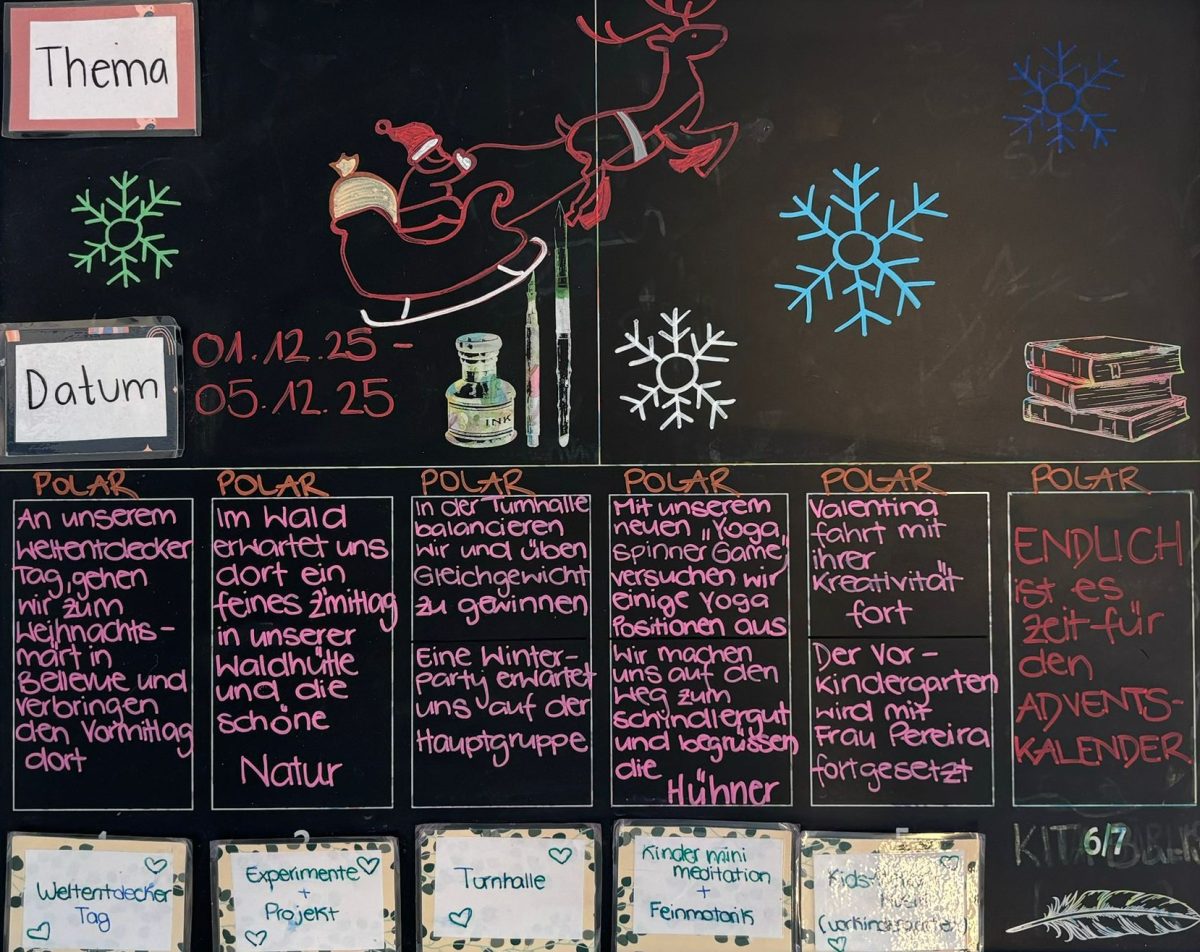 Thema
Datum
01.12.25 -
05.12.25
INK
POLAR
An unserem
Weltentdecker
Tag, gehen
wir zum
Weihnachts-
märt in
Bellevue und
verbringen
den Vormittag
dort
POLAR
Im Wald
erwartet uns
dort ein
feines z'mittag
in unserer
Waldhütte
und die
schöne
Natur
POLAR
In der Turnhalle
balancieren
wir und üben
Gleichgewicht
zu gewinnen
Eine Winter-
party erwartet
uns auf der
Hauptgruppe
POLAR
Mit unserem
neuen „Yoga
Spinner Game"
versuchen wir
einige Yoga
Positionen aus
Wir machen
uns auf den
Weg zum
Schyndlergut
und begrüssen
die
Hühner
POLAR
Valentina
fährt mit
ihrer
Kreativität
fort
Der Vor-
kindergarten
wird mit
Frau Pereira
fortgesetzt
POLAR
ENDLICH
ist es
zeit für
den
ADVENTS-
KALENDER
1
Weltentdecker
Tag
2
Experimente
+
Projekt
Turnhalle
Kinder mini
meditation
+
Feinmotorik
5
Kids
6/7
KITA